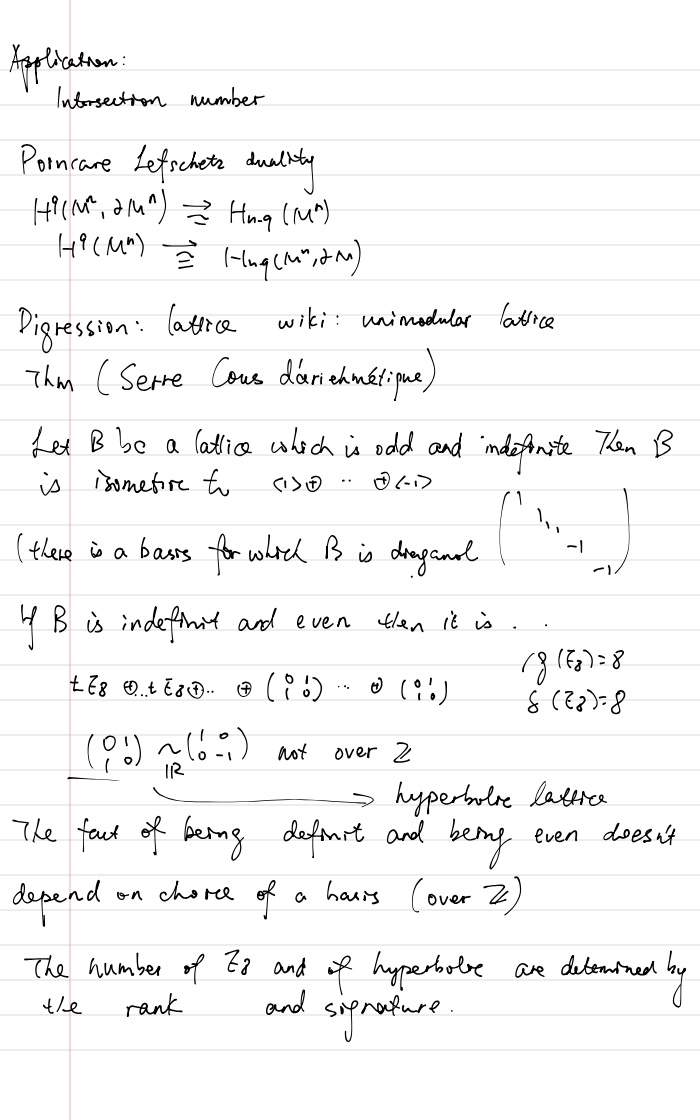 Application:
Intersection number
Poincare Lefschetz duality
H^q(M^n, ∂M^n) ⥲ H_{n-q}(M^n)
H^q(M^n) ⥲ H_{n-q}(M^n, ∂M)
Digression: lattice wiki: unimodular lattice
Thm (Serre Cous d'ariehmétique)
Let B be a lattice which is odd and indefinite Then B
is isometric to <1>⊕ .. ⊕<-1>
(there is a basis for which B is diagonal (1 1, -1 -1)
If B is indefinit and even then it is . .
±E8 ⊕..±E8⊕.. ⊕ (0 1 1 0) .. ⊕ (0 1 1 0)
rg (E8)=8
δ (E8)=8
(0 1 1 0) ~_ℝ (1 0 0 -1) not over ℤ
→ hyperbolic lattice
The fact of being definit and being even doesn't
depend on choice of a basis (over ℤ)
The number of E8 and of hyperbolic are determined by
the rank and signature.